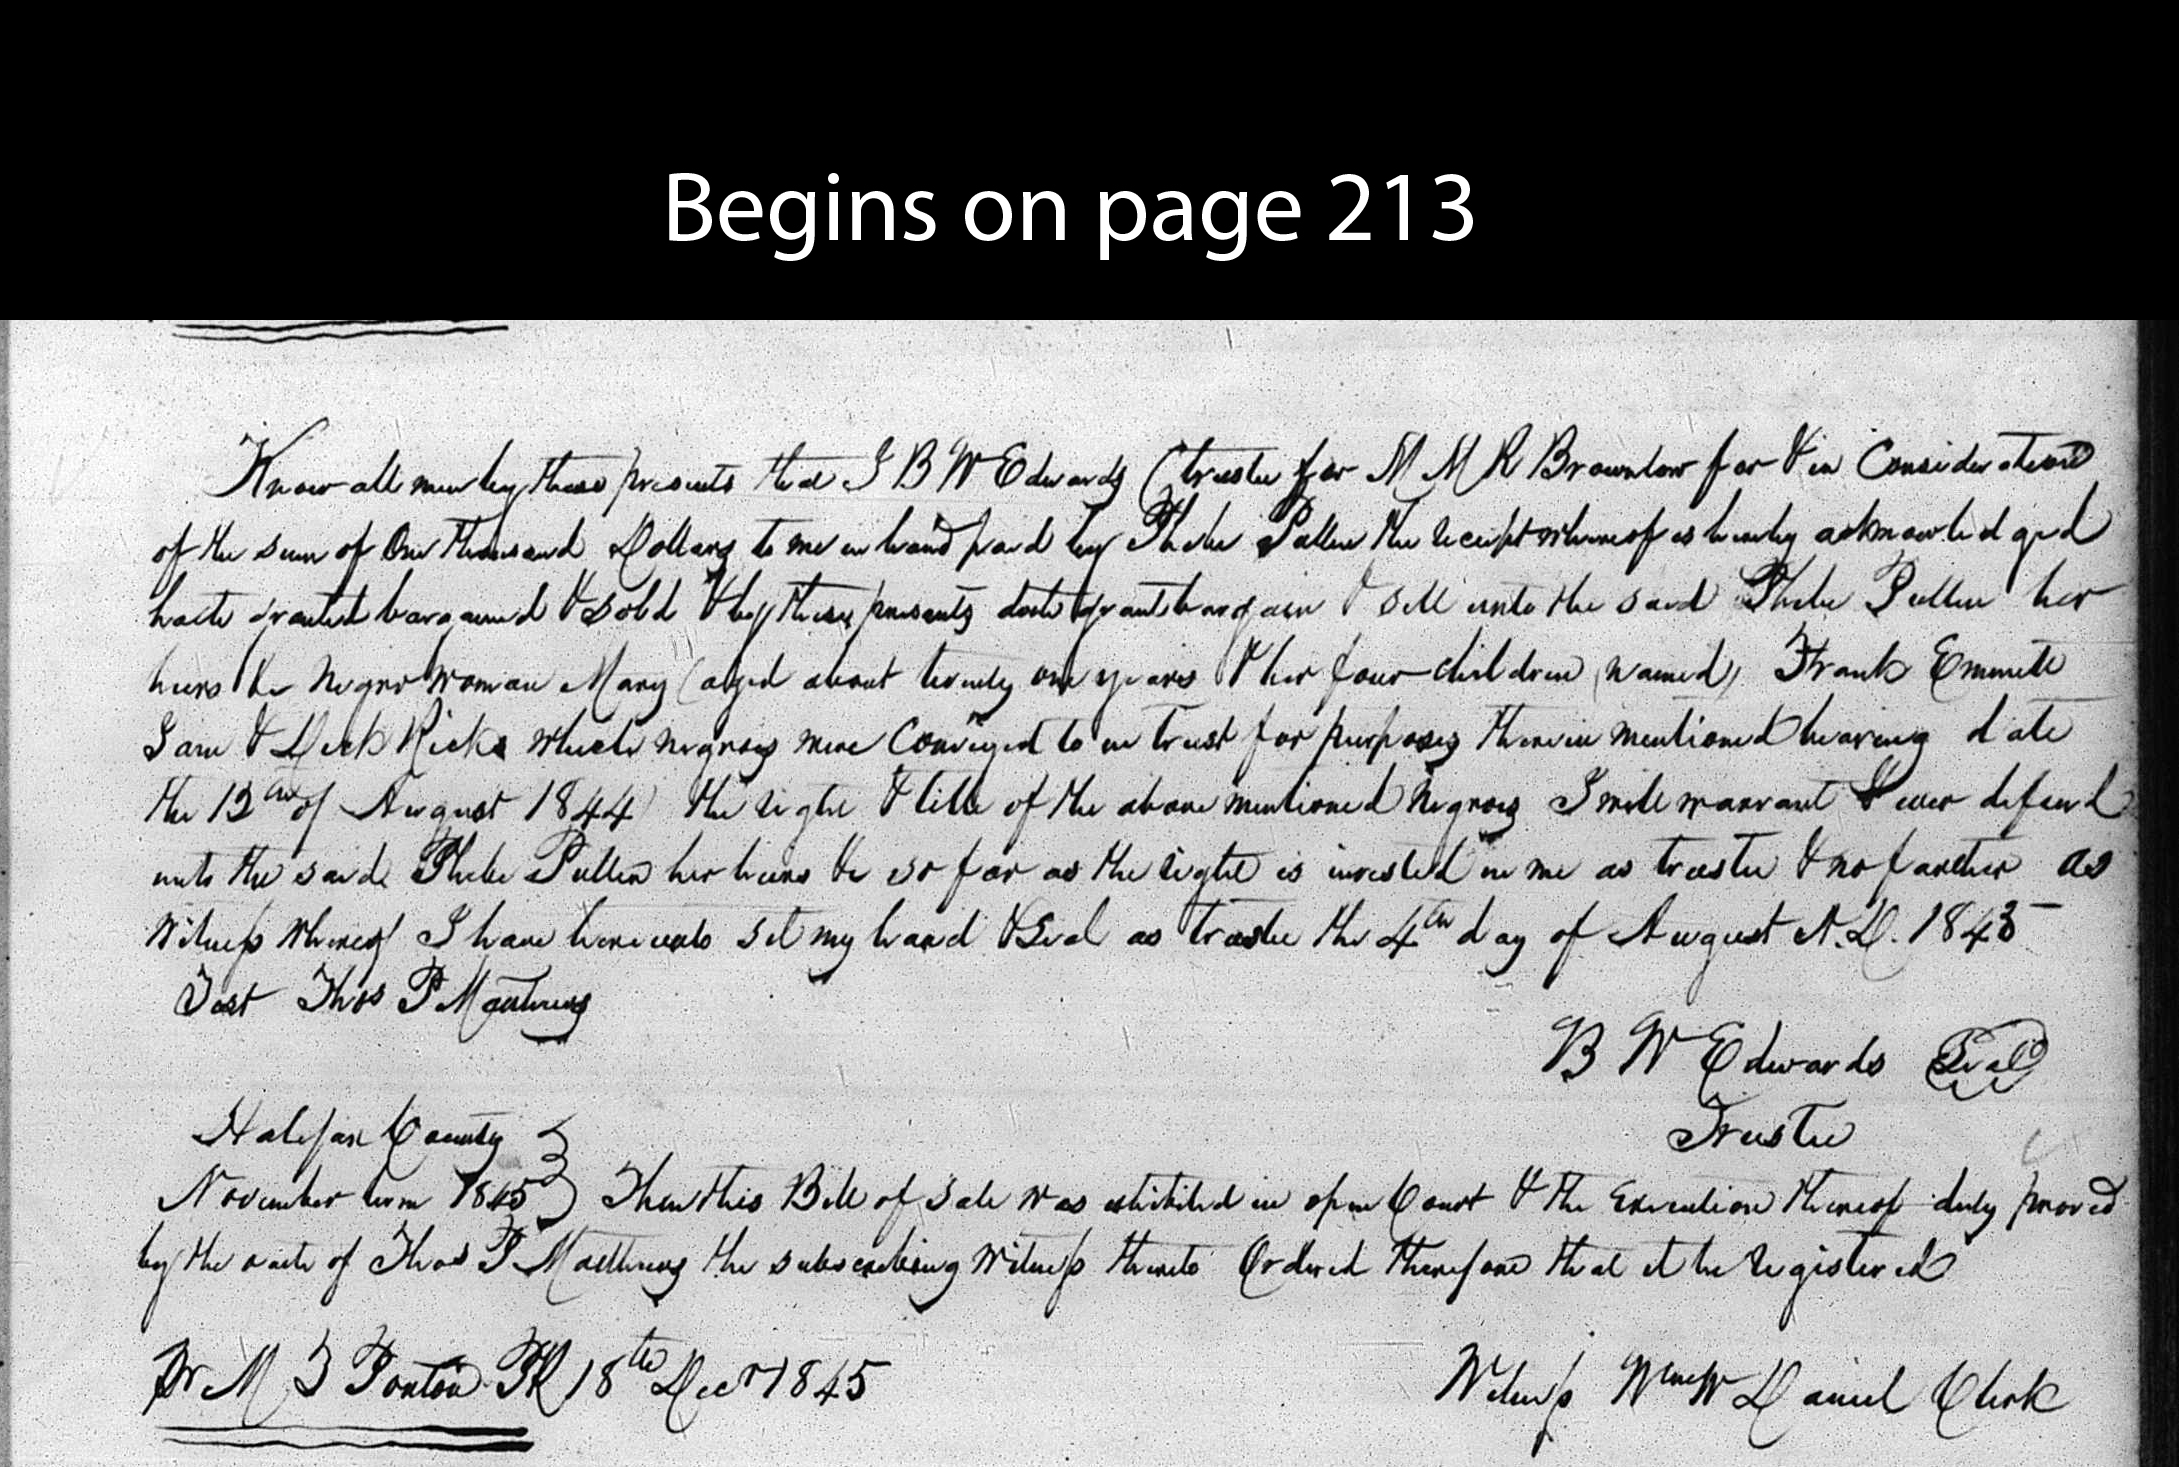 Begins on page 213
Know all men by these presents that I B W Edwards (trustee for M M R Brownlow for & in Consideration
of the sum of One Thousand Dollars to me in hand paid by Phebe Pullen the receipt whereof is hereby acknowledged
hath granted bargained & sold & by these presents doth grant bargain & sell unto the said Phebe Pullen her
heirs &c Negro woman Mary (aged about twenty one years & her four children (named) Frank Emmett
Sam & Dick Ricks which negroes were Conveyed to in trust for purposes therein mentioned bearing date
the 12th of August 1844) the right & title of the above mentioned Negroes I will warrant & ever defend
unto the said Phebe Pullen her heirs &c so far as the right is invested in me as trustee & no farther as
Witness whereof I have hereunto set my hand & Seal as trustee the 4th day of August A.D. 1845
Test Thos P Matthews
B W Edwards Seal
Trustee
Halifax County
November term 1845 } Then this Bill of Sale was exhibited in open Court & the Execution thereof duly proved
by the oath of Thos P Matthews the subscribing Witness thereto Ordered therefore that it be registered
Pr M T Ponton PR 18th Decr 1845
Witness Wm W Daniel Clerk